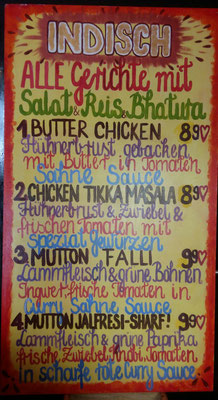 INDISCH
ALLE Gerichte mit
Salat & Reis & Bhatura
1. BUTTER CHICKEN 8,90
Hühnerbrust gebacken
mit Butter, in Tomaten
Sahne Sauce
2. CHICKEN TIKKA MASALA 8,90
Hühnerbrust & Zwiebel &
frischen Tomaten mit
spezial Gewürzen
3. MUTTON FALLI 9,90
Lammfleisch & grüne Bohnen
Ingwer, frische Tomaten in
Curry Sahne Sauce
4. MUTTON JALFRESI-SHARF! 9,90
Lammfleisch & grüne Paprika
frische Zwiebel, Knobi, Tomaten
in scharfe rote Curry Sauce